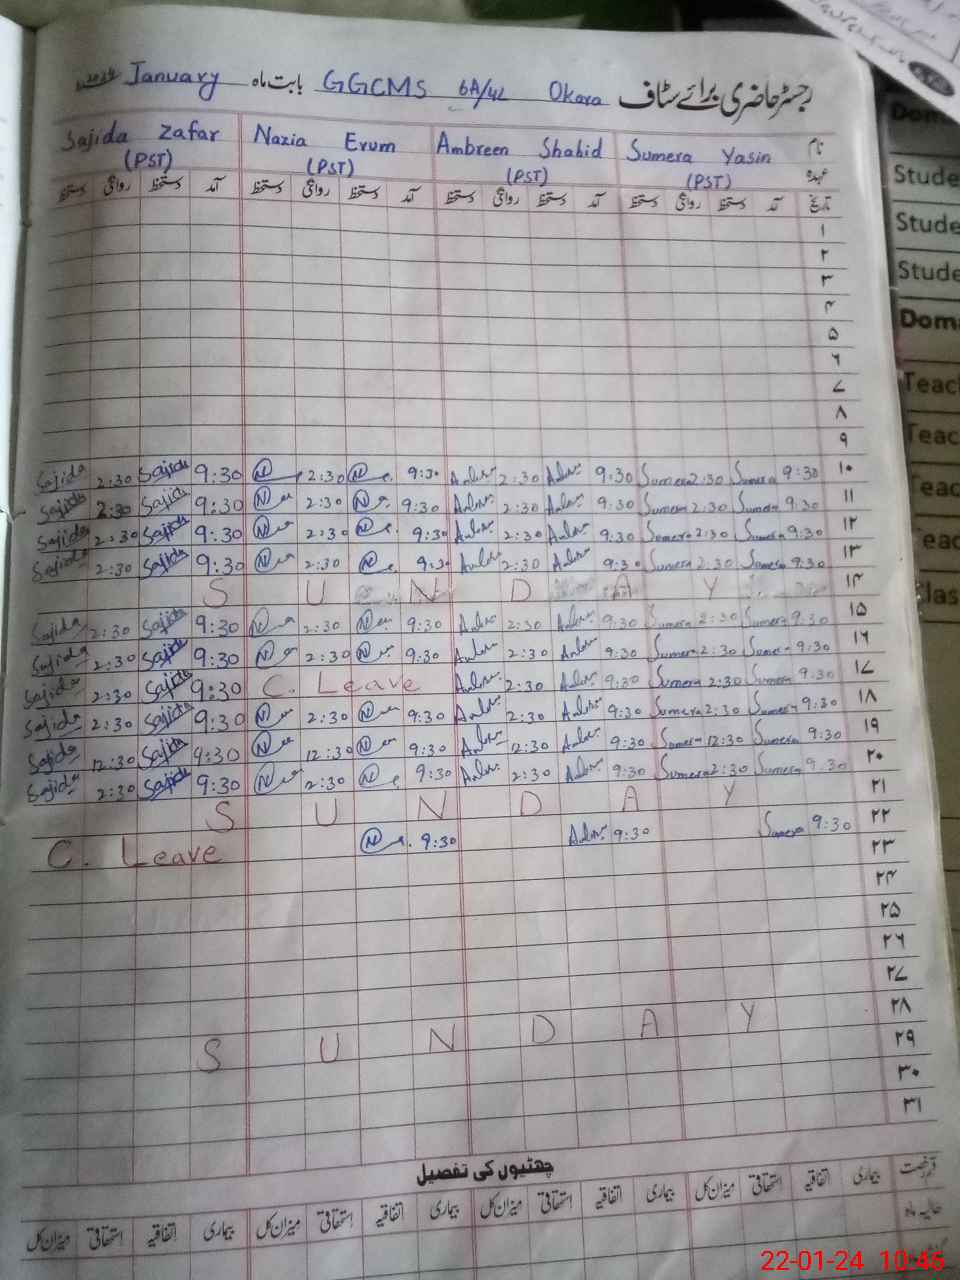 رجسٹر حاضری برائے سٹاف GGCMS 6A/4L Okara بابت ماہ January
نام Sumera Yasin Ambreen Shahid Nazia Erum Sajida Zafar
عہدہ (PST) (PST) (PST) (PST)
تاریخ آمد دستخط روانگی دستخط آمد دستخط روانگی دستخط آمد دستخط روانگی دستخط آمد دستخط روانگی دستخط
۱
۲
۳
۴
۵
۶
۷
۸
۹
۱۰ 9:30 Sumera 2:30 Sumera 9:30 2:30 9:30 2:30 9:30 Sajida 2:30 Sajida
۱۱ 9:30 Sumera 2:30 Sumera 9:30 2:30 9:30 2:30 9:30 Sajida 2:30 Sajida
۱۲ 9:30 Sumera 2:30 Sumera 9:30 2:30 9:30 2:30 9:30 Sajida 2:30 Sajida
۱۳ 9:30 Sumera 2:30 Sumera 9:30 2:30 9:30 2:30 9:30 Sajida 2:30 Sajida
۱۴ S U N D A Y
۱۵ 9:30 Sumera 2:30 Sumera 9:30 2:30 9:30 2:30 9:30 Sajida 2:30 Sajida
۱۶ 9:30 Sumera 2:30 Sumera 9:30 2:30 9:30 2:30 9:30 Sajida 2:30 Sajida
۱۷ 9:30 Sumera 2:30 Sumera 9:30 2:30 C. Leave 9:30 Sajida 2:30 Sajida
۱۸ 9:30 Sumera 2:30 Sumera 9:30 2:30 9:30 2:30 9:30 Sajida 2:30 Sajida
۱۹ 9:30 Sumera 12:30 Sumera 9:30 12:30 9:30 12:30 9:30 Sajida 12:30 Sajida
۲۰ 9:30 Sumera 2:30 Sumera 9:30 2:30 9:30 2:30 9:30 Sajida 2:30 Sajida
۲۱ S U N D A Y
۲۲ 9:30 Sumera 9:30 9:30 C. Leave
۲۳
۲۴
۲۵
۲۶
۲۷
۲۸ S U N D A Y
۲۹
۳۰
۳۱
چھٹیوں کی تفصیل
قسم رخصت بیماری اتفاقیہ استحقاقی میزان کل بیماری اتفاقیہ استحقاقی میزان کل بیماری اتفاقیہ استحقاقی میزان کل بیماری اتفاقیہ استحقاقی میزان کل
حالیہ ماہ
Stude
Stude
Stude
Dom
Teac
22-01-24 10:46